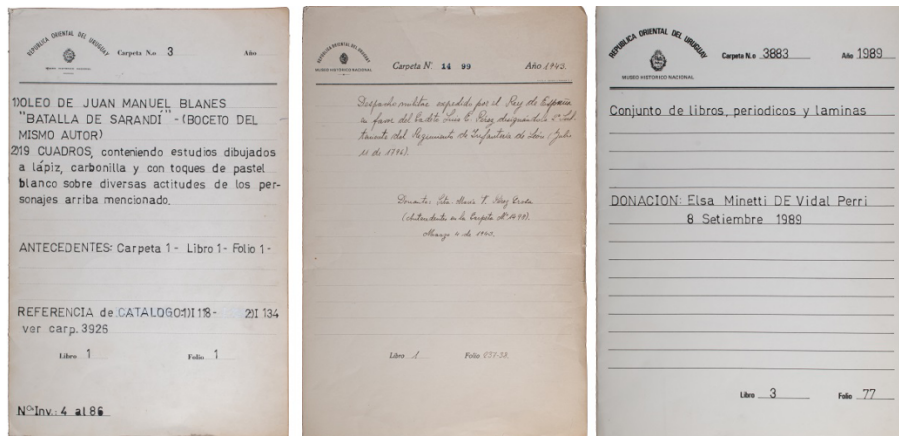 REPUBLICA ORIENTAL DEL URUGUAY
Carpeta N.o 3 Año
1)OLEO DE JUAN MANUEL BLANES
"BATALLA DE SARANDÍ" - (BOCETO DEL
MISMO AUTOR)
2)19 CUADROS, conteniendo estudios dibujados
a lápiz, carbonilla y con toques de pastel
blanco sobre diversas actitudes de los per-
sonajes arriba mencionado.
ANTECEDENTES: Carpeta 1 - Libro 1 - Folio 1 -
REFERENCIA de CATALOGO:1)I 118 - 2)I 134
ver carp. 3926
Libro 1 Folio 1
Nº Inv.: 4 al 86
REPUBLICA ORIENTAL DEL URUGUAY
MUSEO HISTORICO NACIONAL
Carpeta N.º 14 99 Año 1943.
Despacho militar expedido por el Rey de España
a favor del Cadete Luis E. Pérez designándole 2º Sub
teniente del Regimiento de Infantería de León (Julio
11 de 1796).
Donante: Srta. María F. Pérez
(Antecedentes en la Carpeta Nº 1498).
Marzo 4 de 1943.
Libro 1 Folio 037-38.
REPUBLICA ORIENTAL DEL URUGUAY
MUSEO HISTORICO NACIONAL
Carpeta N.o 3883 Año 1989
Conjunto de libros, periodicos y laminas
DONACION: Elsa Minetti DE Vidal Perri
8 Setiembre 1989
Libro 3 Folio 77